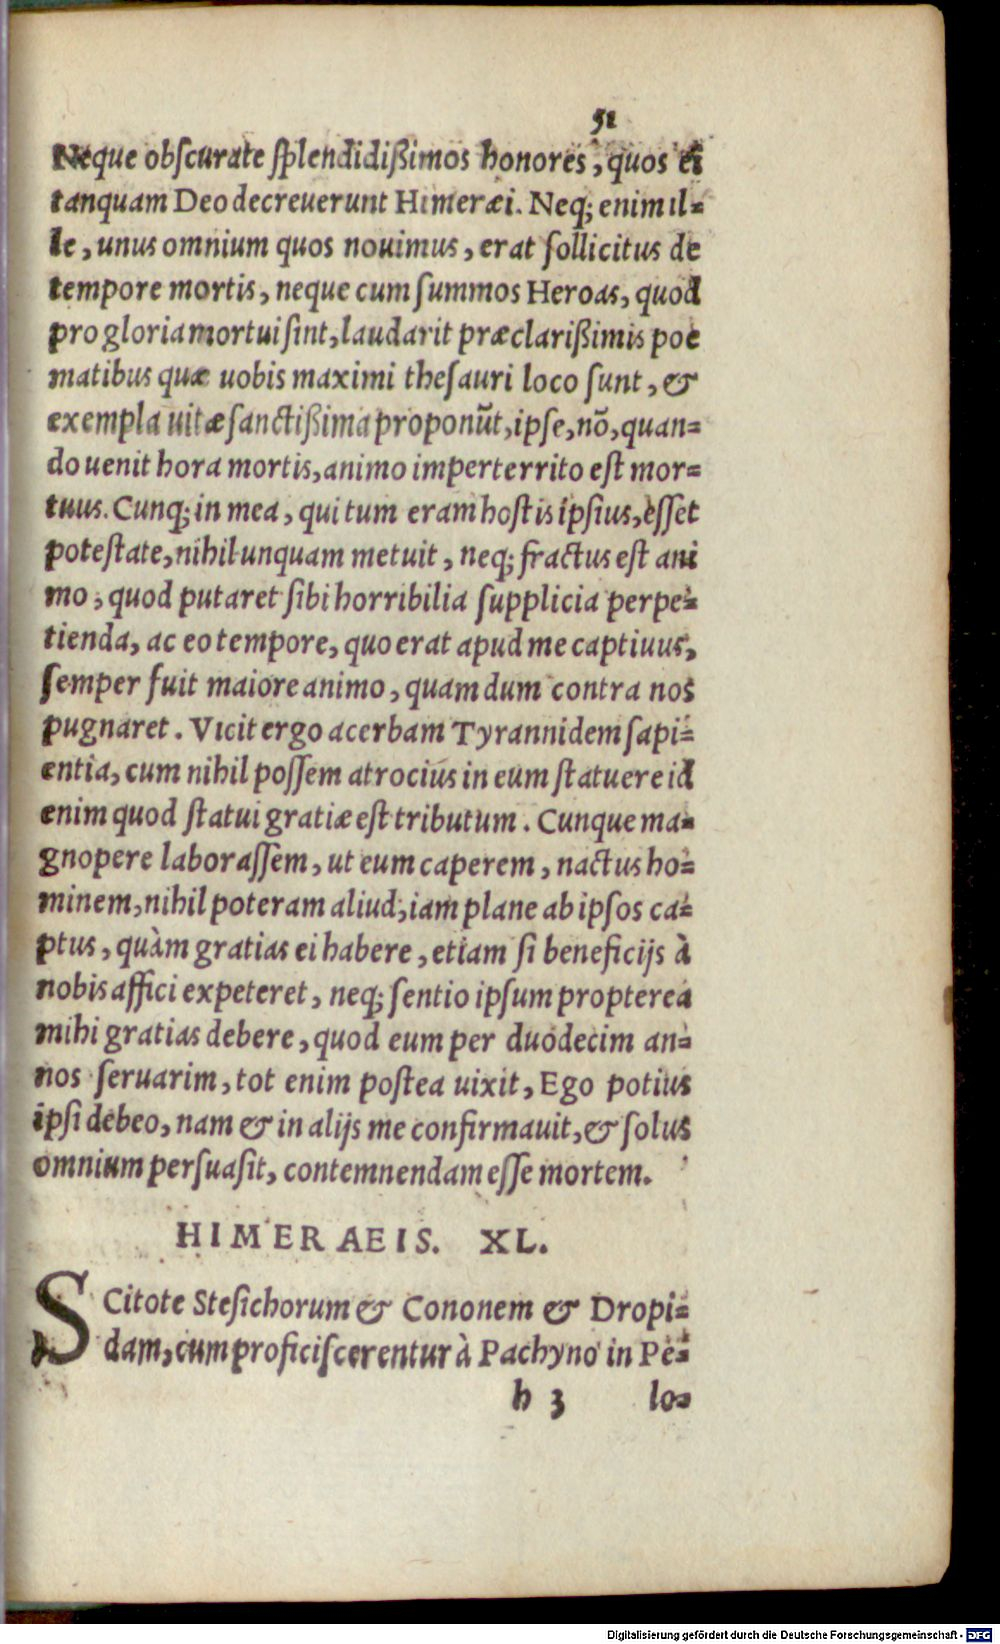 51
Neque obscurate splendidißimos honores, quos ei
tanquam Deo decreuerunt Himeræi. Neq; enim il=
le, unus omnium quos nouimus, erat sollicitus de
tempore mortis, neque cum summos Heroas, quod
pro gloria mortui sint, laudarit præclarißimis poe
matibus quæ uobis maximi thesauri loco sunt, &
exempla uitæ sanctißima proponũt, ipse, nõ, quan=
do uenit hora mortis, animo imperterrito est mor=
tuus. Cunq; in mea, qui tum eram hostis ipsius, esset
potestate, nihil unquam metuit, neq; fractus est ani
mo; quod putaret sibi horribilia supplicia perpe=
tienda, ac eo tempore, quo erat apud me captiuus,
semper fuit maiore animo, quam dum contra nos
pugnaret. Vicit ergo acerbam Tyrannidem sapi=
entia, cum nihil possem atrocius in eum statuere id
enim quod statui gratiæ est tributum. Cunque ma=
gnopere laborassem, ut eum caperem, nactus ho=
minem, nihil poteram aliud, iam plane ab ipsos ca=
ptus, quàm gratias ei habere, etiam si beneficijs à
nobis affici expeteret, neq; sentio ipsum propterea
mihi gratias debere, quod eum per duodecim an=
nos seruarim, tot enim postea uixit, Ego potius
ipsi debeo, nam & in alijs me confirmauit, & solus
omnium persuasit, contemnendam esse mortem.
HIMERAEIS. XL.
SCitote Stesichorum & Cononem & Dropi=
dam, cum proficiscerentur à Pachyno in Pe=
h 3 lo=
Digitalisierung gefördert durch die Deutsche Forschungsgemeinschaft - DFG